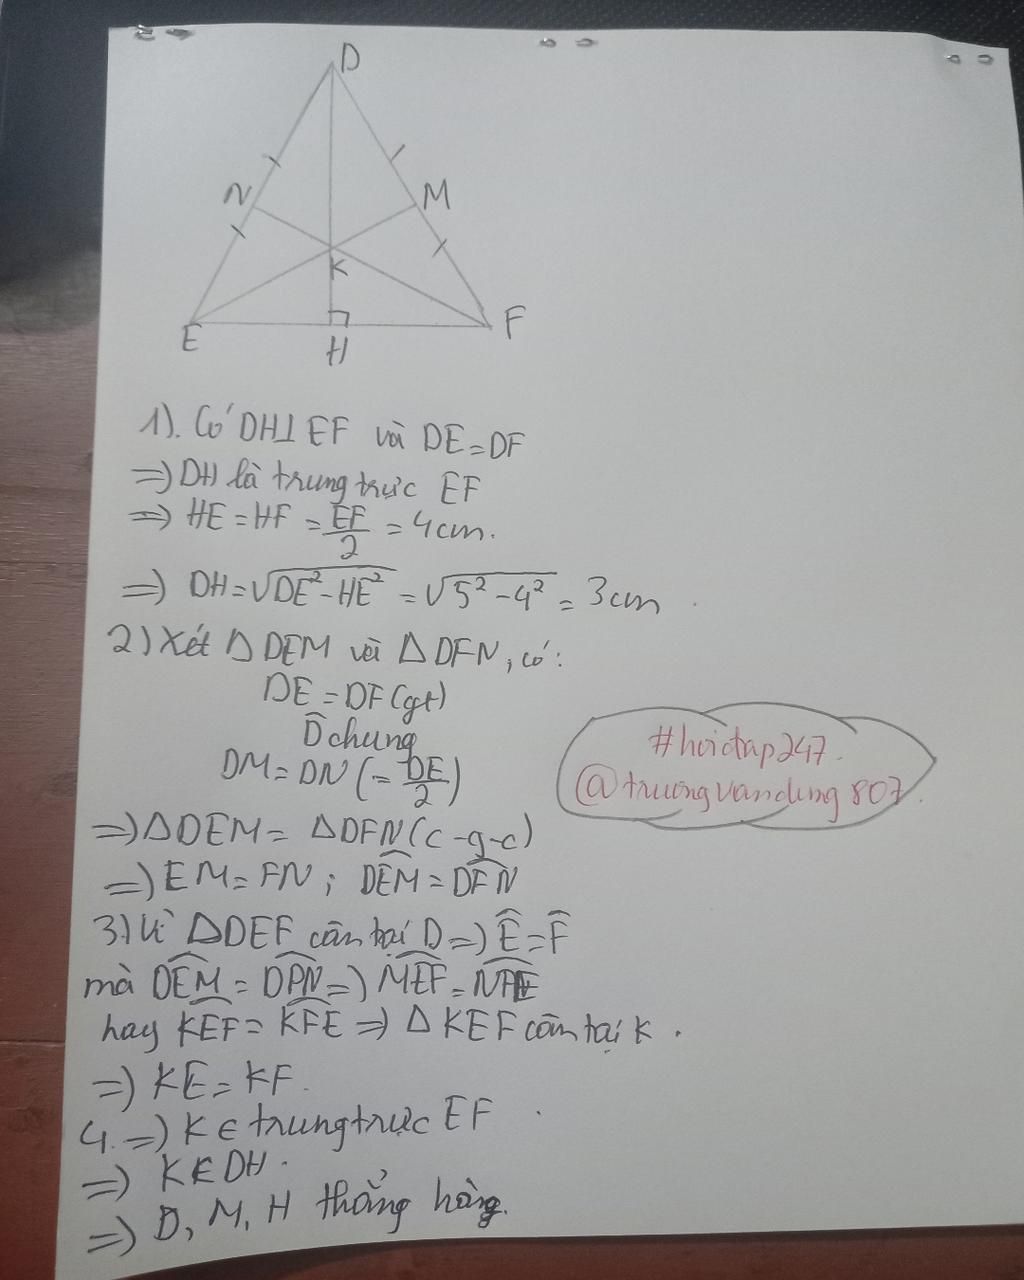 D
N
M
K
E
H
F
1). Có DH⊥EF và DE=DF
=) DH là trung trực EF
=) HE = HF = EF/2 = 4cm.
=) DH = √DE²-HE² = √5²-4² = 3cm.
2) Xét Δ DEM và Δ DFN, có:
DE = DF (gt)
D̂ chung
DM = DN (= DE/2)
=) ΔDEM = ΔDFN (c-g-c)
=) EM = FN ; DEM̂ = DFN̂
3.) Vì ΔDEF cân tại D =) Ê = F̂
mà DEM̂ = DPN̂ =) MEF̂ = NFÊ
hay KEF̂ = KFÊ =) Δ KEF cân tại K.
=) KE = KF.
4. =) K ∈ trung trực EF.
=) K ∈ DH.
=) D, M, H thẳng hàng.
#hoidap247.
@truongvandung807.